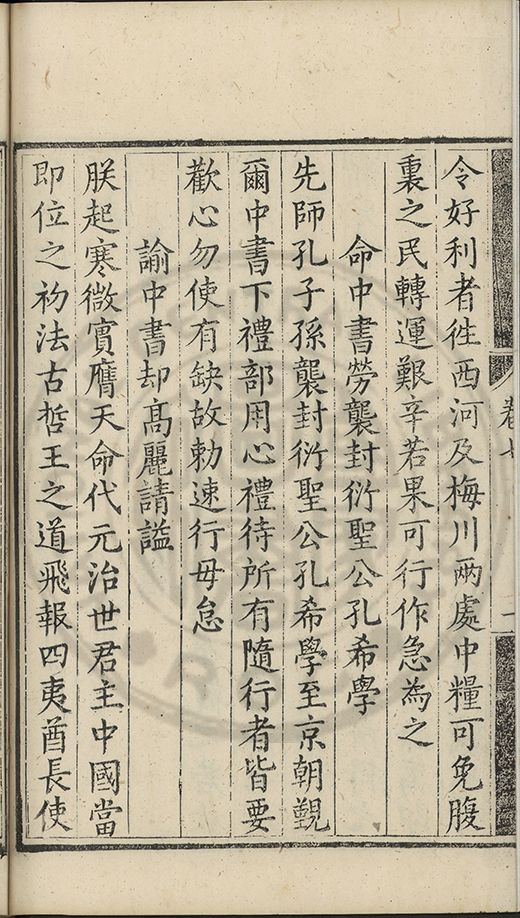 令好利者徃西河及梅川兩處中糧可免腹
裏之民轉運艱辛若果可行作急為之
命中書勞襲封衍聖公孔希學
先師孔子孫襲封衍聖公孔希學至京朝覲
爾中書下禮部用心禮待所有隨行者皆要
歡心勿使有缺故勅速行毋怠
諭中書却髙麗請謚
朕起寒微實膺天命代元治世君主中國當
即位之初法古哲王之道飛報四夷酋長使